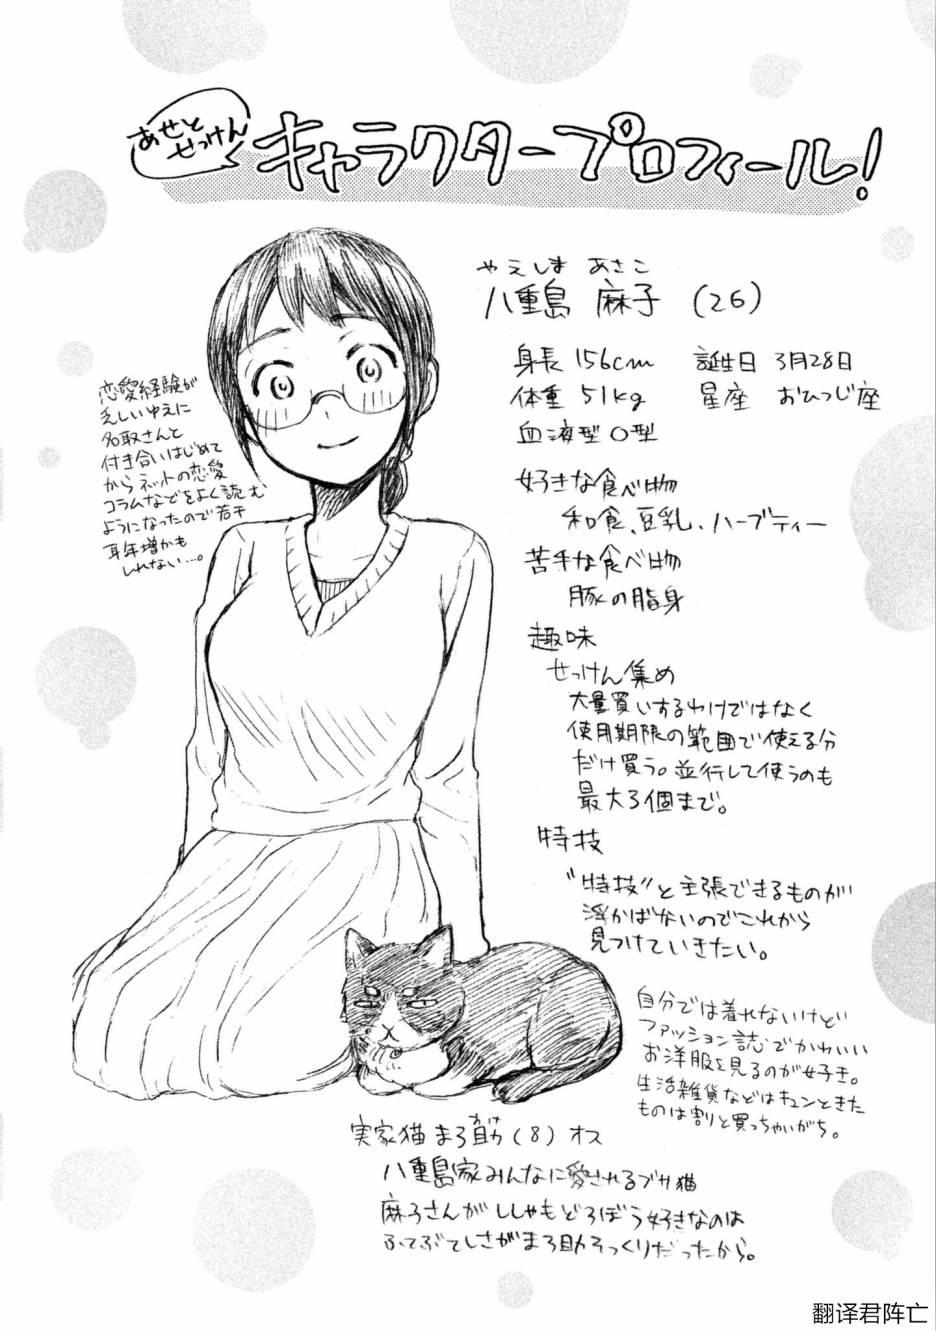 あせと
せっけん
キャラクタープロフィール!
やえしま あさこ
八重島 麻子 (26)
身長 156cm 誕生日 3月28日
体重 51kg 星座 おひつじ座
血液型 O型
恋愛経験が
乏しいゆえに
名取さんと
付き合いはじめて
からネットの恋愛
コラムなどをよく読む
ようになったので若干
耳年増かも
しれない…。
好きな食べ物
和食、豆乳、ハーブティー
苦手な食べ物
豚の脂身
趣味
せっけん集め
大量買いするわけではなく
使用期限の範囲で使える分
だけ買う。並行して使うのも
最大3個まで。
特技
"特技"と主張できるものが
浮かばないのでこれから
見つけていきたい。
自分では着れないけど
ファッション誌でかわいい
お洋服を見るのが好き。
生活雑貨などはキュンときた
ものは割と買っちゃいがち。
実家猫 まろ助 (8) オス
八重島家みんなに愛されるブサ猫
麻子さんがししゃもどろぼう好きなのは
ふてぶてしさがまろ助そっくりだったから。
翻译君阵亡